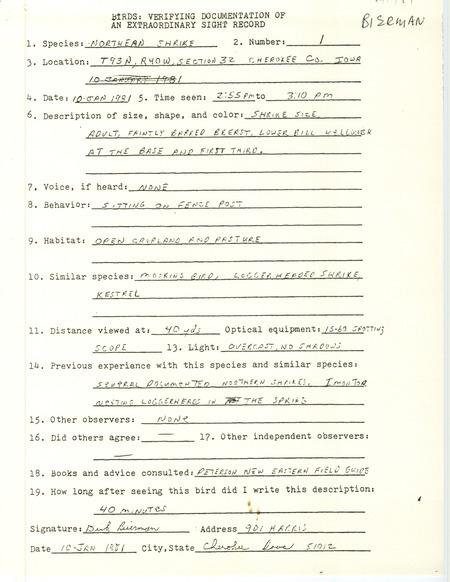 BIERMAN
BIRDS: VERIFYING DOCUMENTATION OF
AN EXTRAORDINARY SIGHT RECORD
1. Species: NORTHERN SHRIKE 2. Number: 1
3. Location: T93N, R40W, SECTION 32 CHEROKEE CO. IOWA
10 JANUARY 1981
4. Date: 10-JAN 1981 5. Time seen: 2:55 PM to 3:10 PM
6. Description of size, shape, and color: SHRIKE SIZE
ADULT, FAINTLY BARRED BREAST, LOWER BILL
AT THE BASE AND FIRST THIRD.
7. Voice, if heard: NONE
8. Behavior: SITTING ON FENCE POST
9. Habitat: OPEN CROPLAND AND PASTURE
10. Similar species: MOCKING BIRD, LOGGERHEADED SHRIKE,
KESTREL
11. Distance viewed at: 40 yds Optical equipment: 15-60 SPOTTING
SCOPE 13. Light: OVERCAST, NO SHADOWS
14. Previous experience with this species and similar species:
SEVERAL DOCUMENTED NORTHERN SHRIKES. I MONITOR
NESTING LOGGERHEADS IN THE SPRING
15. Other observers: NONE
16. Did others agree: — 17. Other independent observers:
—
18. Books and advice consulted: PETERSON NEW EASTERN FIELD GUIDE
19. How long after seeing this bird did I write this description:
40 MINUTES
Signature: Dick Bierman Address 901 HARRIS
Date 10-JAN 1981 City, State Cherokee Iowa 51012